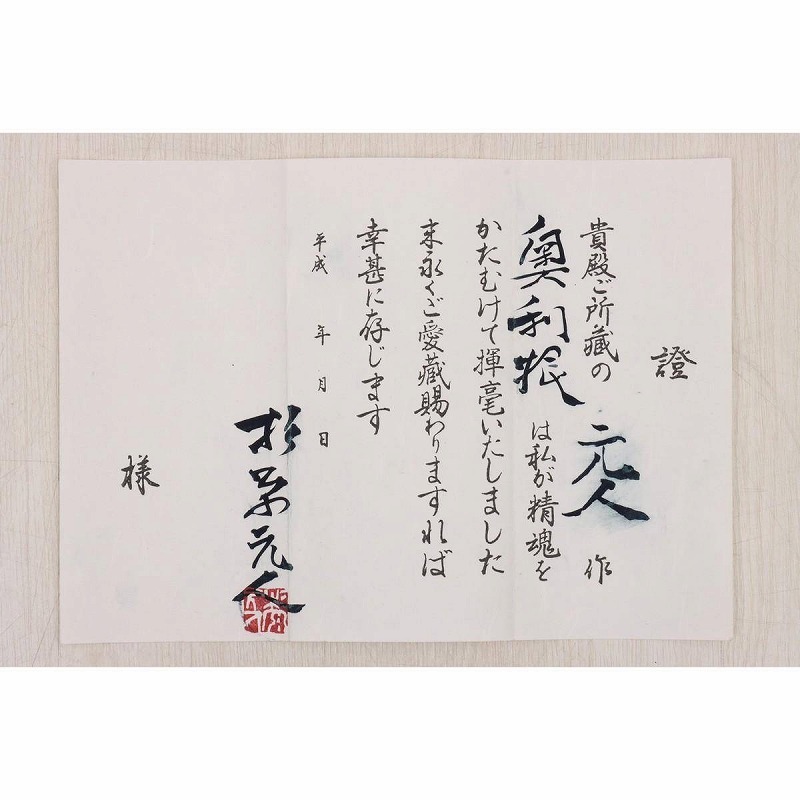 證
貴殿ご所蔵の 元人 作
奥利根 は私が精魂を
かたむけて揮毫いたしました
末永くご愛蔵賜わりますれば
幸甚に存じます
平成 年 月 日
元人
様